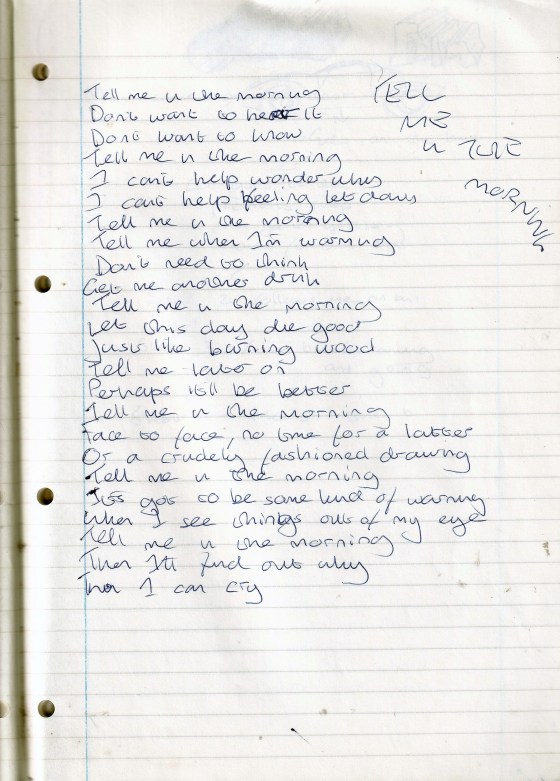 Tell me in the morning
Dont want to hear it
Dont want to know
Tell me in the morning
I cant help wonder why
I cant help feeling let down
Tell me in the morning
Tell me when Im warning
Don't need to think
Get me another drink
Tell me in the morning
Let this day die good
Just like burning wood
Tell me later on
Perhaps itll be better
Tell me in the morning
Face to face, no time for a latter
Or a crudely fashioned drawing
Tell me in the morning
Its got to be some kind of warning
When I see things out of my eye
Tell me in the morning
Then Ill find out why
Then I can cry
TELL
ME
IN THE
MORNING